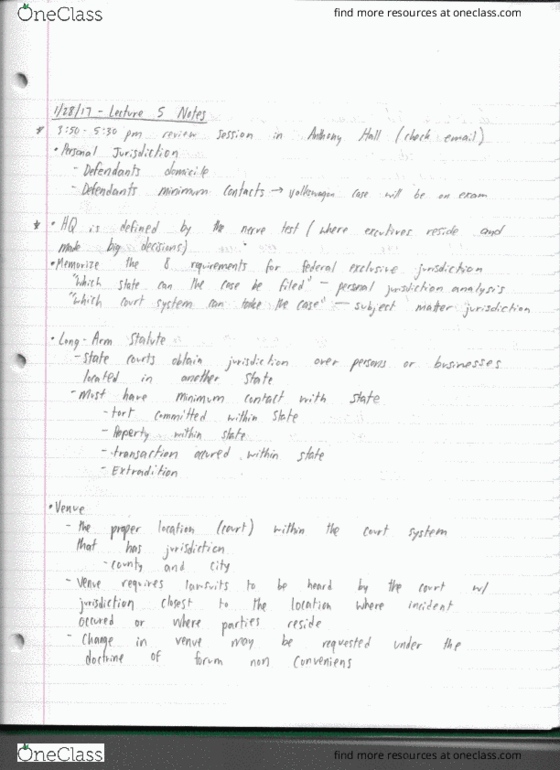 OneClass
find more resources at oneclass.com
1/28/17 - Lecture 5 Notes
* 3:50 - 5:30 pm review session in Anthony Hall (check email)
• Personal Jurisdiction
- Defendants domicile
- Defendants minimum contacts → Volkswagen case will be on exam
* • HQ is defined by the nerve test (where excutives reside and
make big decisions)
• Memorize the 8 requirements for federal exclusive jurisdiction
"which state can the case be filed" – personal jurisdiction analysis
"which court system can take the case" – subject matter jurisdiction
• Long-Arm Statute
- State courts obtain jurisdiction over persons or businesses
located in another state
- Must have minimum contact with state
- tort committed within state
- Property within state
- transaction occured within state
- Extradition
• Venue
- the proper location (court) within the court system
that has jurisdiction
- county and city
- Venue requires lawsuits to be heard by the court w/
jurisdiction closest to the location where incident
occured or where parties reside
- Change in venue may be requested under the
doctrine of forum non conveniens
OneClass
find more resources at oneclass.com